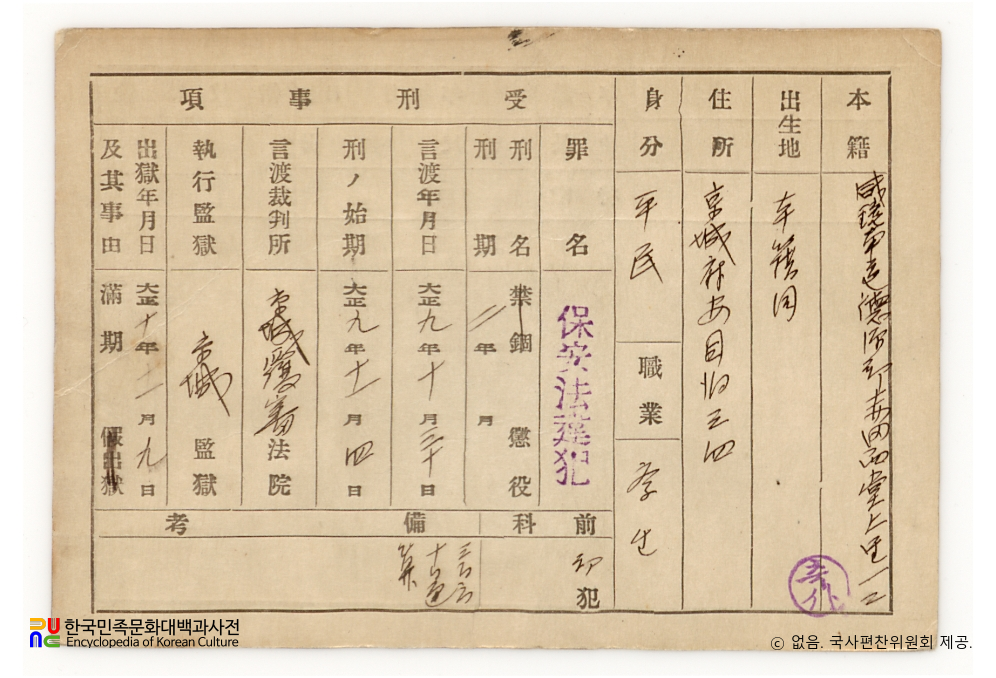 本籍
咸鏡南道德源郡赤田面堂上里一二
出生地
本籍同
住所
京城府安国洞三四
身分
平民
職業
学生
受刑事項
罪名
保安法違犯
刑名
禁錮 懲役
刑期
二年 月
言渡年月日
大正九年十月三十日
刑ノ始期
大正九年十一月四日
言渡裁判所
京城覆審法院
執行監獄
京城監獄
出獄年月日及其事由
大正十年十一月九日
滿期 假出獄
前科
初犯
備考
한국민족문화대백과사전
Encyclopedia of Korean Culture
© 없음. 국사편찬위원회 제공.